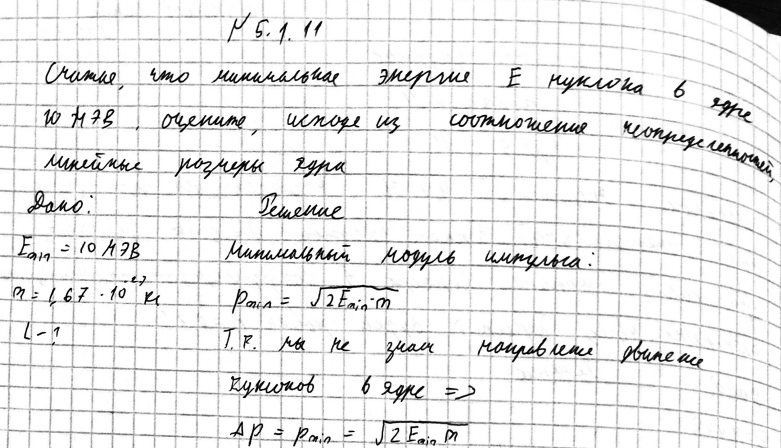 № 5.1.11
Считая, что минимальная энергия E нуклона в ядре
10 МэВ, оцените, исходя из соотношения неопределенностей,
линейные размеры ядра
Дано: Решение
Emin = 10 МэВ Минимальный модуль импульса:
m = 1,67 · 10^-27 кг pmin = √2Emin·m
L - ? Т.к. мы не знаем направление движения
нуклонов в ядре =>
Δp = pmin = √2Emin m